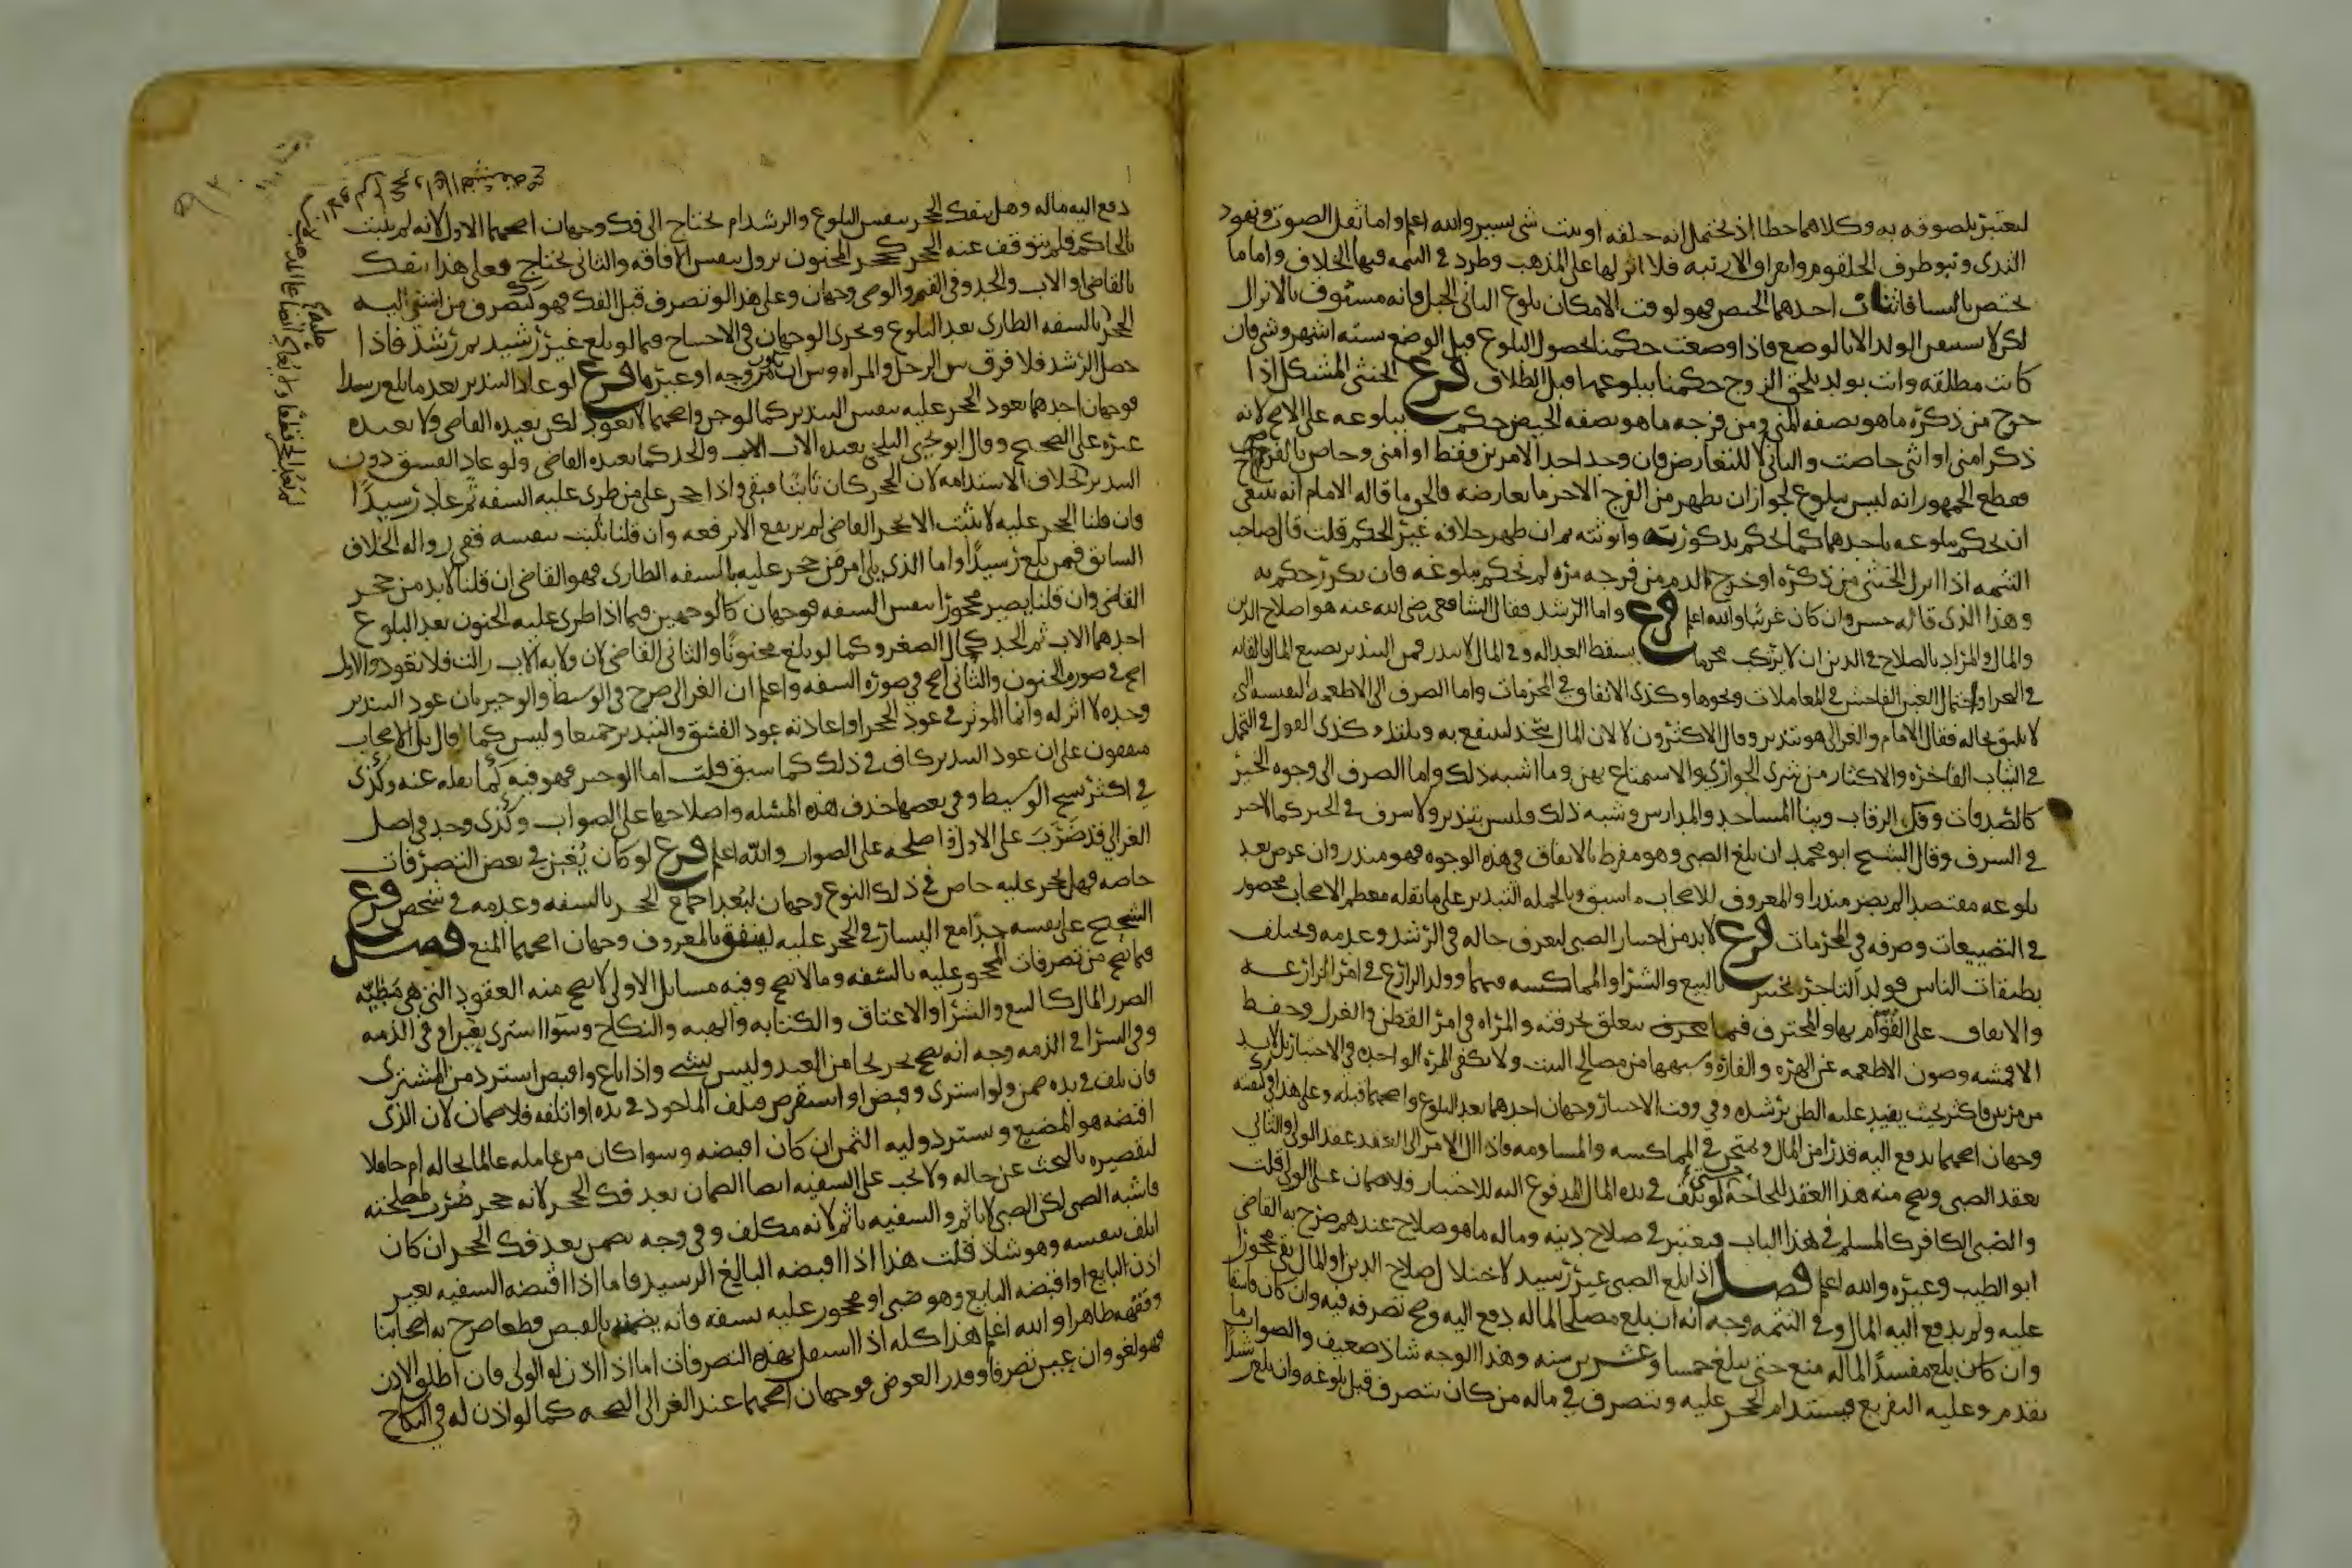 لتعتبر بلصوقه به وكلاهما خطا اذ يحتمل انه حلقه او نبت شي يسير والله اعلم واما ثقل الصوت ونهود
الثدى ونتو طرف الحلقوم وانفراق الارنبه فلا اثر لها على المذهب وطرد في التتمه فيها الخلاف واما ما
يختص بالنسا فاثنان احدهما الحيض فهو لوقت الامكان بلوغ الثاني الحبل فانه مسبوق بالانزال
لكن لا نستيقن الولد الا بالوضع فاذا وضعت حكمنا بحصول البلوغ قبل الوضع بسته اشهر وشي فان
كانت مطلقه واتت بولد يلحق الزوج حكمنا ببلوغها قبل الطلاق فرع الخنثى المشكل اذا
خرج من ذكره ما هو بصفه المني ومن فرجه ما هو بصفه الحيض حكم ببلوغه على الاصح لانه
ذكر امنى او انثى حاضت والثاني لا للتعارض فان وجد احد الامرين فقط او امنى وحاض بالفرج
فقطع الجمهور انه ليس ببلوغ لجواز ان يظهر من الفرج الاخر ما يعارضه والحق ما قاله الامام انه ينبغي
ان يحكم ببلوغه باحدهما كما يحكم بذكورته وانوثته ثم ان ظهر خلافه غير الحكم قلت قال صاحب
التتمه اذا انزل الخنثى من ذكره او خرج الدم من فرجه مره لم نحكم ببلوغه فان تكرر حكم به
وهذا الذى قاله حسن وان كان غريبا والله اعلم فرع واما الرشد فقال الشافعي رضي الله عنه هو اصلاح الدين
والمال والمراد بالصلاح في الدين ان لا يرتكب محرما يسقط العداله وفي المال لا يبذر فمن التبذير تضييع المال بالقائه
في البحر او احتمال الغبن الفاحش في المعاملات ونحوها وكذى الانفاق في المحرمات واما الصرف الى الاطعمه النفيسه التى
لا تليق بحاله فقال الامام والغزالي هو تبذير وقال الاكثرون لا لان المال يتخذ لينتفع به ويلتذ وكذى القول في التجمل
في الثياب الفاخره والاكثار من شرى الجواري والاستمتاع بهن وما اشبه ذلك واما الصرف الى وجوه الخير
كالصدقات وفك الرقاب وبنا المساجد والمدارس وشبه ذلك فليس بتبذير ولا سرف في الخير كما لا خير
في السرف وقال الشيخ ابو محمد ان بلغ الصبي وهو مفرط بالانفاق في هذه الوجوه فهو مبذر وان عرض بعد
بلوغه مقتصدا لم يصر مبذرا والمعروف للاصحاب ما سبق وبالجمله التبذير على ما نقله معظم الاصحاب محصور
في التضييعات وصرفه في المحرمات فرع لا بد من اختبار الصبي ليعرف حاله في الرشد وعدمه ويختلف
بطبقات الناس فولد التاجر يختبر بالبيع والشرا والمماكسه فيهما وولد الزارع في امر المزارعه
والانفاق على القوام بها والمحترف فيما يتعلق بحرفته والمراه في امر القطن والغزل وحفظ
الاقمشه وصون الاطعمه عن الهره والفاره وشبهها من مصالح البيت ولا تكفي المره الواحده في الاختبار بل لا بد
من مرتين فاكثر بحيث يفيد غلبه الظن برشده وفي وقت الاختبار وجهان احدهما بعد البلوغ واصحهما قبله وعلى هذا في كيفيته
وجهان اصحهما يدفع اليه قدرا من المال ويمتحن في المماكسه والمساومه فاذا ال الامر الى العقد عقد الولى والثاني
يعقد الصبي ويصح منه هذا العقد للحاجه ولو تلف في يده المال المدفوع اليه للاختبار فلا ضمان على الولى قلت
والصبي الكافر كالمسلم في هذا الباب فيعتبر في صلاح دينه وماله ما هو صلاح عندهم صرح به القاضي
ابو الطيب وغيره والله اعلم فصل اذا بلغ الصبي غير رشيد لاختلال صلاح الدين او المال بقى محجورا
عليه ولم يدفع اليه المال وفي التتمه وجه انه ان بلغ مصلحا لماله دفع اليه وصح تصرفه فيه وان كان فاسقا
وان كان بلغ مفسدا لماله منع حتى يبلغ خمسا وعشرين سنه وهذا الوجه شاذ ضعيف والصواب ما
تقدم وعليه التفريع فيستدام الحجر عليه ويتصرف في ماله من كان يتصرف قبل بلوغه وان بلغ رشيدا
دفع اليه ماله وهل ينفك الحجر بنفس البلوغ والرشد ام يحتاج الى فك وجهان اصحهما الاول لانه لم يثبت
بالحاكم فلم يتوقف عنه الحجر كحجر المجنون يزول بنفس الافاقه والثاني يحتاج فعلى هذا ينفك
بالقاضي او الاب والجد وفي القيم والوصي وجهان وعلى هذا لو تصرف قبل الفك فهو كتصرف من انشئ اليه
الحجر بالسفه الطارى بعد البلوغ ويجرى الوجهان في الاحتياج فيما لو بلغ غير رشيد ثم رشد فاذا
حصل الرشد فلا فرق بين الرجل والمراه وبين ان تكون مزوجه او غيرها فرع لو عاد التبذير بعد ما بلغ رشيدا
فوجهان احدهما يعود الحجر عليه بنفس التبذير كما لو جن واصحهما لا يعود لكن يعيده القاضي ولا يعيده
غيره على الصحيح وقال ابو يحيى البلخي يعيده الاب والجد كما يعيده القاضي ولو عاد الفسق دون
التبذير بخلاف الاستدامه لان الحجر كان ثابتا فبقي واذا حجر على من طرى عليه السفه ثم عاد رشيدا
فان قلنا الحجر عليه لا يثبت الا بحجر القاضي لم يرتفع الا برفعه وان قلنا يثبت بنفسه ففي زواله الخلاف
السابق فيمن بلغ رشيدا واما الذى يلي امر من حجر عليه بالسفه الطارى فهو القاضي ان قلنا لا بد من حجر
القاضي وان قلنا يصير محجورا بنفس السفه فوجهان كالوجهين فيما اذا طرى عليه الجنون بعد البلوغ
احدهما الاب ثم الجد كحال الصغر وكما لو بلغ مجنونا والثاني القاضي لان ولايه الاب زالت فلا تعود والاول
اصح في صوره الجنون والثاني اصح في صوره السفه واعلم ان الغزالي صرح في الوسيط والوجيز بان عود التبذير
وحده لا اثر له وانما الموثر في عود الحجر او اعادته عود الفسق والتبذير جميعا وليس كما قال بل الاصحاب
متفقون على ان عود التبذير كاف في ذلك كما سبق قلت اما الوجيز فهو فيه كما نقله عنه وكذى
في اكثر نسخ الوسيط وفي بعضها حذف هذه المسئله واصلاحها على الصواب وكذى وجد في اصل
الغزالي قد ضرب على الاول واصلحه على الصواب والله اعلم فرع لو كان يغبن في بعض التصرفات
خاصه فهل يحجر عليه خاص في ذلك النوع وجهان لبعد اجتماع الحجر بالسفه وعدمه في شخص فرع
الشحيح على نفسه جدا مع اليسار في الحجر عليه لينفق بالمعروف وجهان اصحهما المنع فصل
فيما يصح من تصرفات المحجور عليه بالسفه وما لا يصح وفيه مسائل الاولى لا يصح منه العقود التي هي مظنه
الضرر المالي كالبيع والشرا والاعتاق والكتابه والهبه والنكاح وسوا اشترى بعين او في الذمه
وفي الشرا في الذمه وجه انه يصح تخريجا من العبد وليس بشي واذا باع واقبض استرد من المشترى
فان تلف في يده ضمن ولو اشترى وقبض او استقرض فتلف الماخوذ في يده او اتلفه فلا ضمان لان الذى
اقبضه هو المضيع ويسترد وليه الثمن ان كان اقبضه وسوا كان من عامله عالما بحاله ام جاهلا
لتقصيره بالبحث عن حاله ولا يجب على السفيه ايضا الضمان بعد فك الحجر لانه حجر ضرب لمصلحته
فاشبه الصبي لكن الصبي لا ياثم والسفيه ياثم لانه مكلف وفي وجه يضمن بعد فك الحجر ان كان
اتلف بنفسه وهو شاذ قلت هذا اذا اقبضه البالغ الرشيد فاما اذا اقبضه السفيه بغير
اذن البايع او اقبضه البايع وهو صبي او محجور عليه بسفه فانه يضمنه بالقبض قطعا صرح به اصحابنا
وفقهه ظاهر والله اعلم هذا كله اذا استقل بهذه التصرفات اما اذا اذن له الولى فان اطلق الاذن
فهو لغو وان عين تصرفا وقدر العوض فوجهان اصحهما عند الغزالي الصحه كما لو اذن له في النكاح